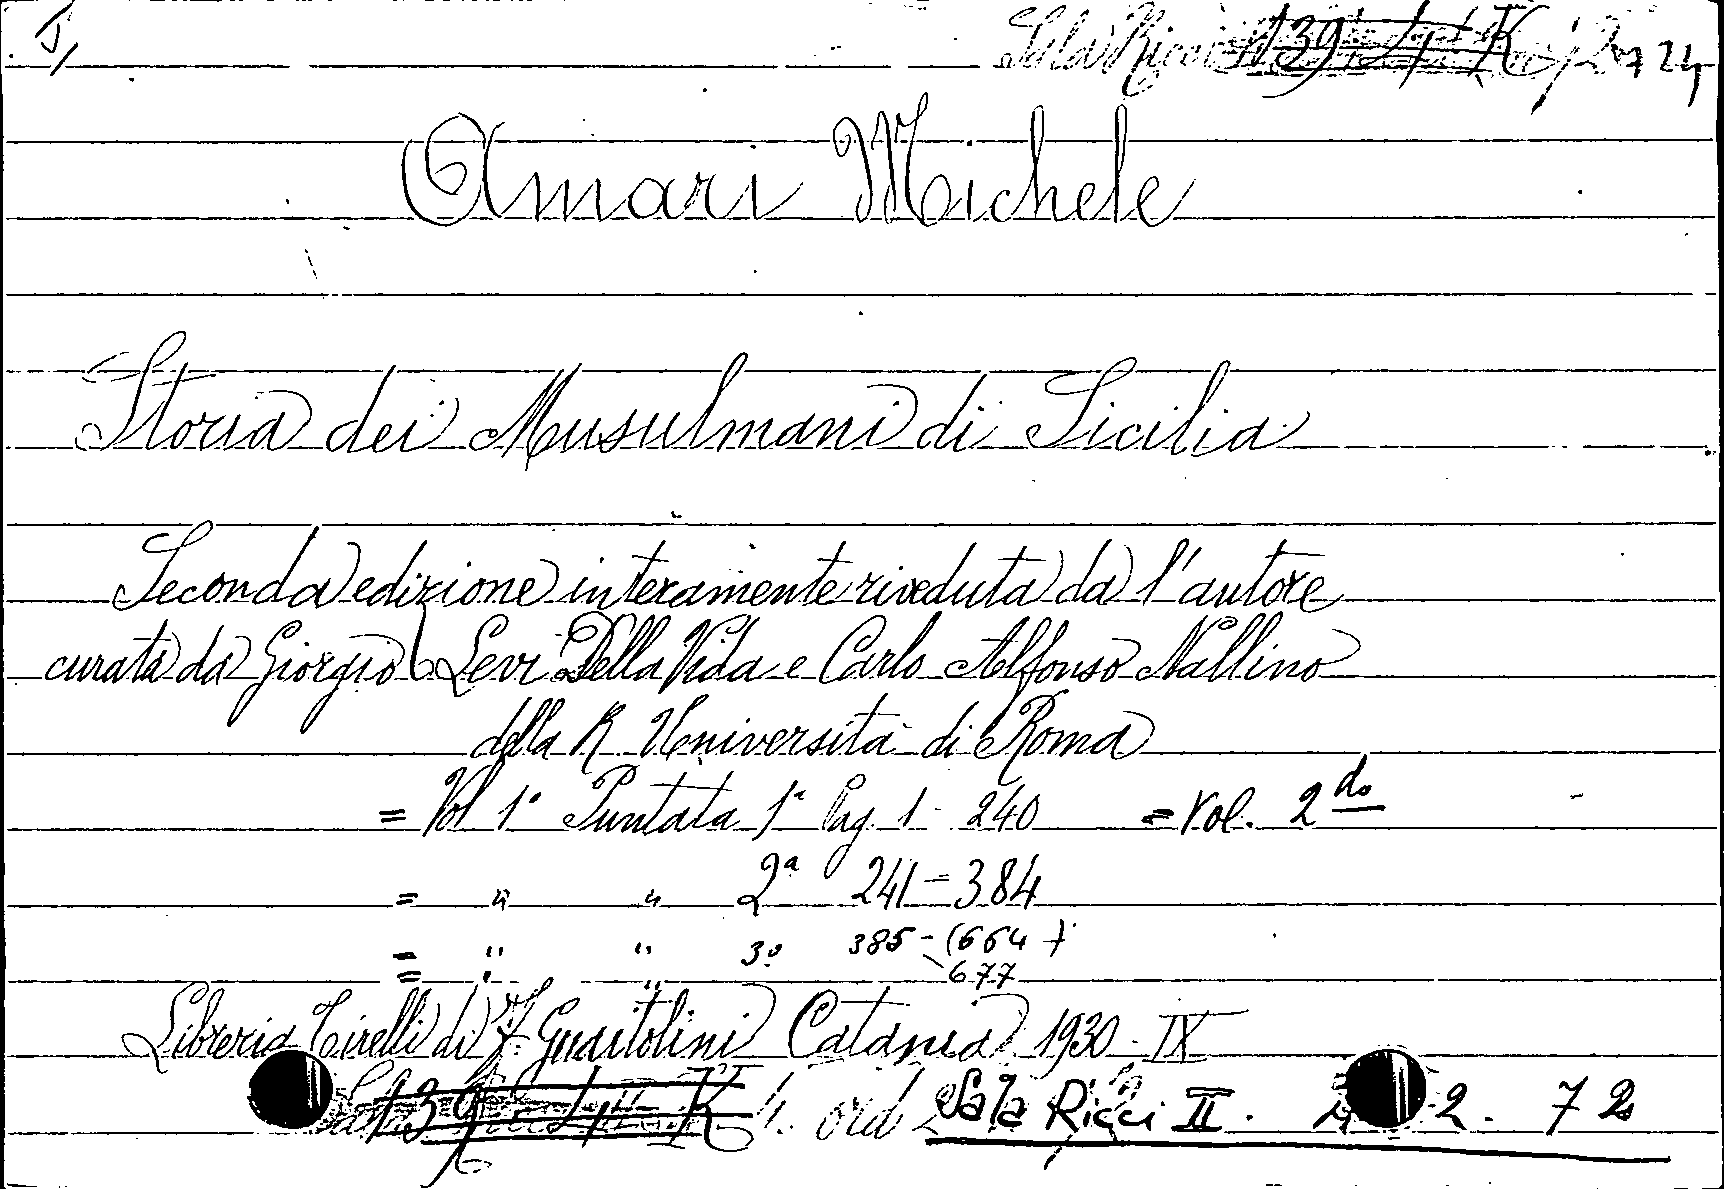 Sala Ricci
Amari Michele
Storia dei Musulmani di Sicilia
Seconda edizione interamente riveduta da l'autore
curata da Giorgio Levi Della Vida e Carlo Alfonso Nallino
della R. Università di Roma
= Vol 1° Puntata 1ª Pag. 1 - 240 = Vol. 2 do
= " " 2ª 241 - 384
= " " 3ª 385 - (664)
= " " 677
Libreria Tirelli di F. Guaitolini Catania 1930 - IX
139 4 K ord Sala Ricci II. 2. 72